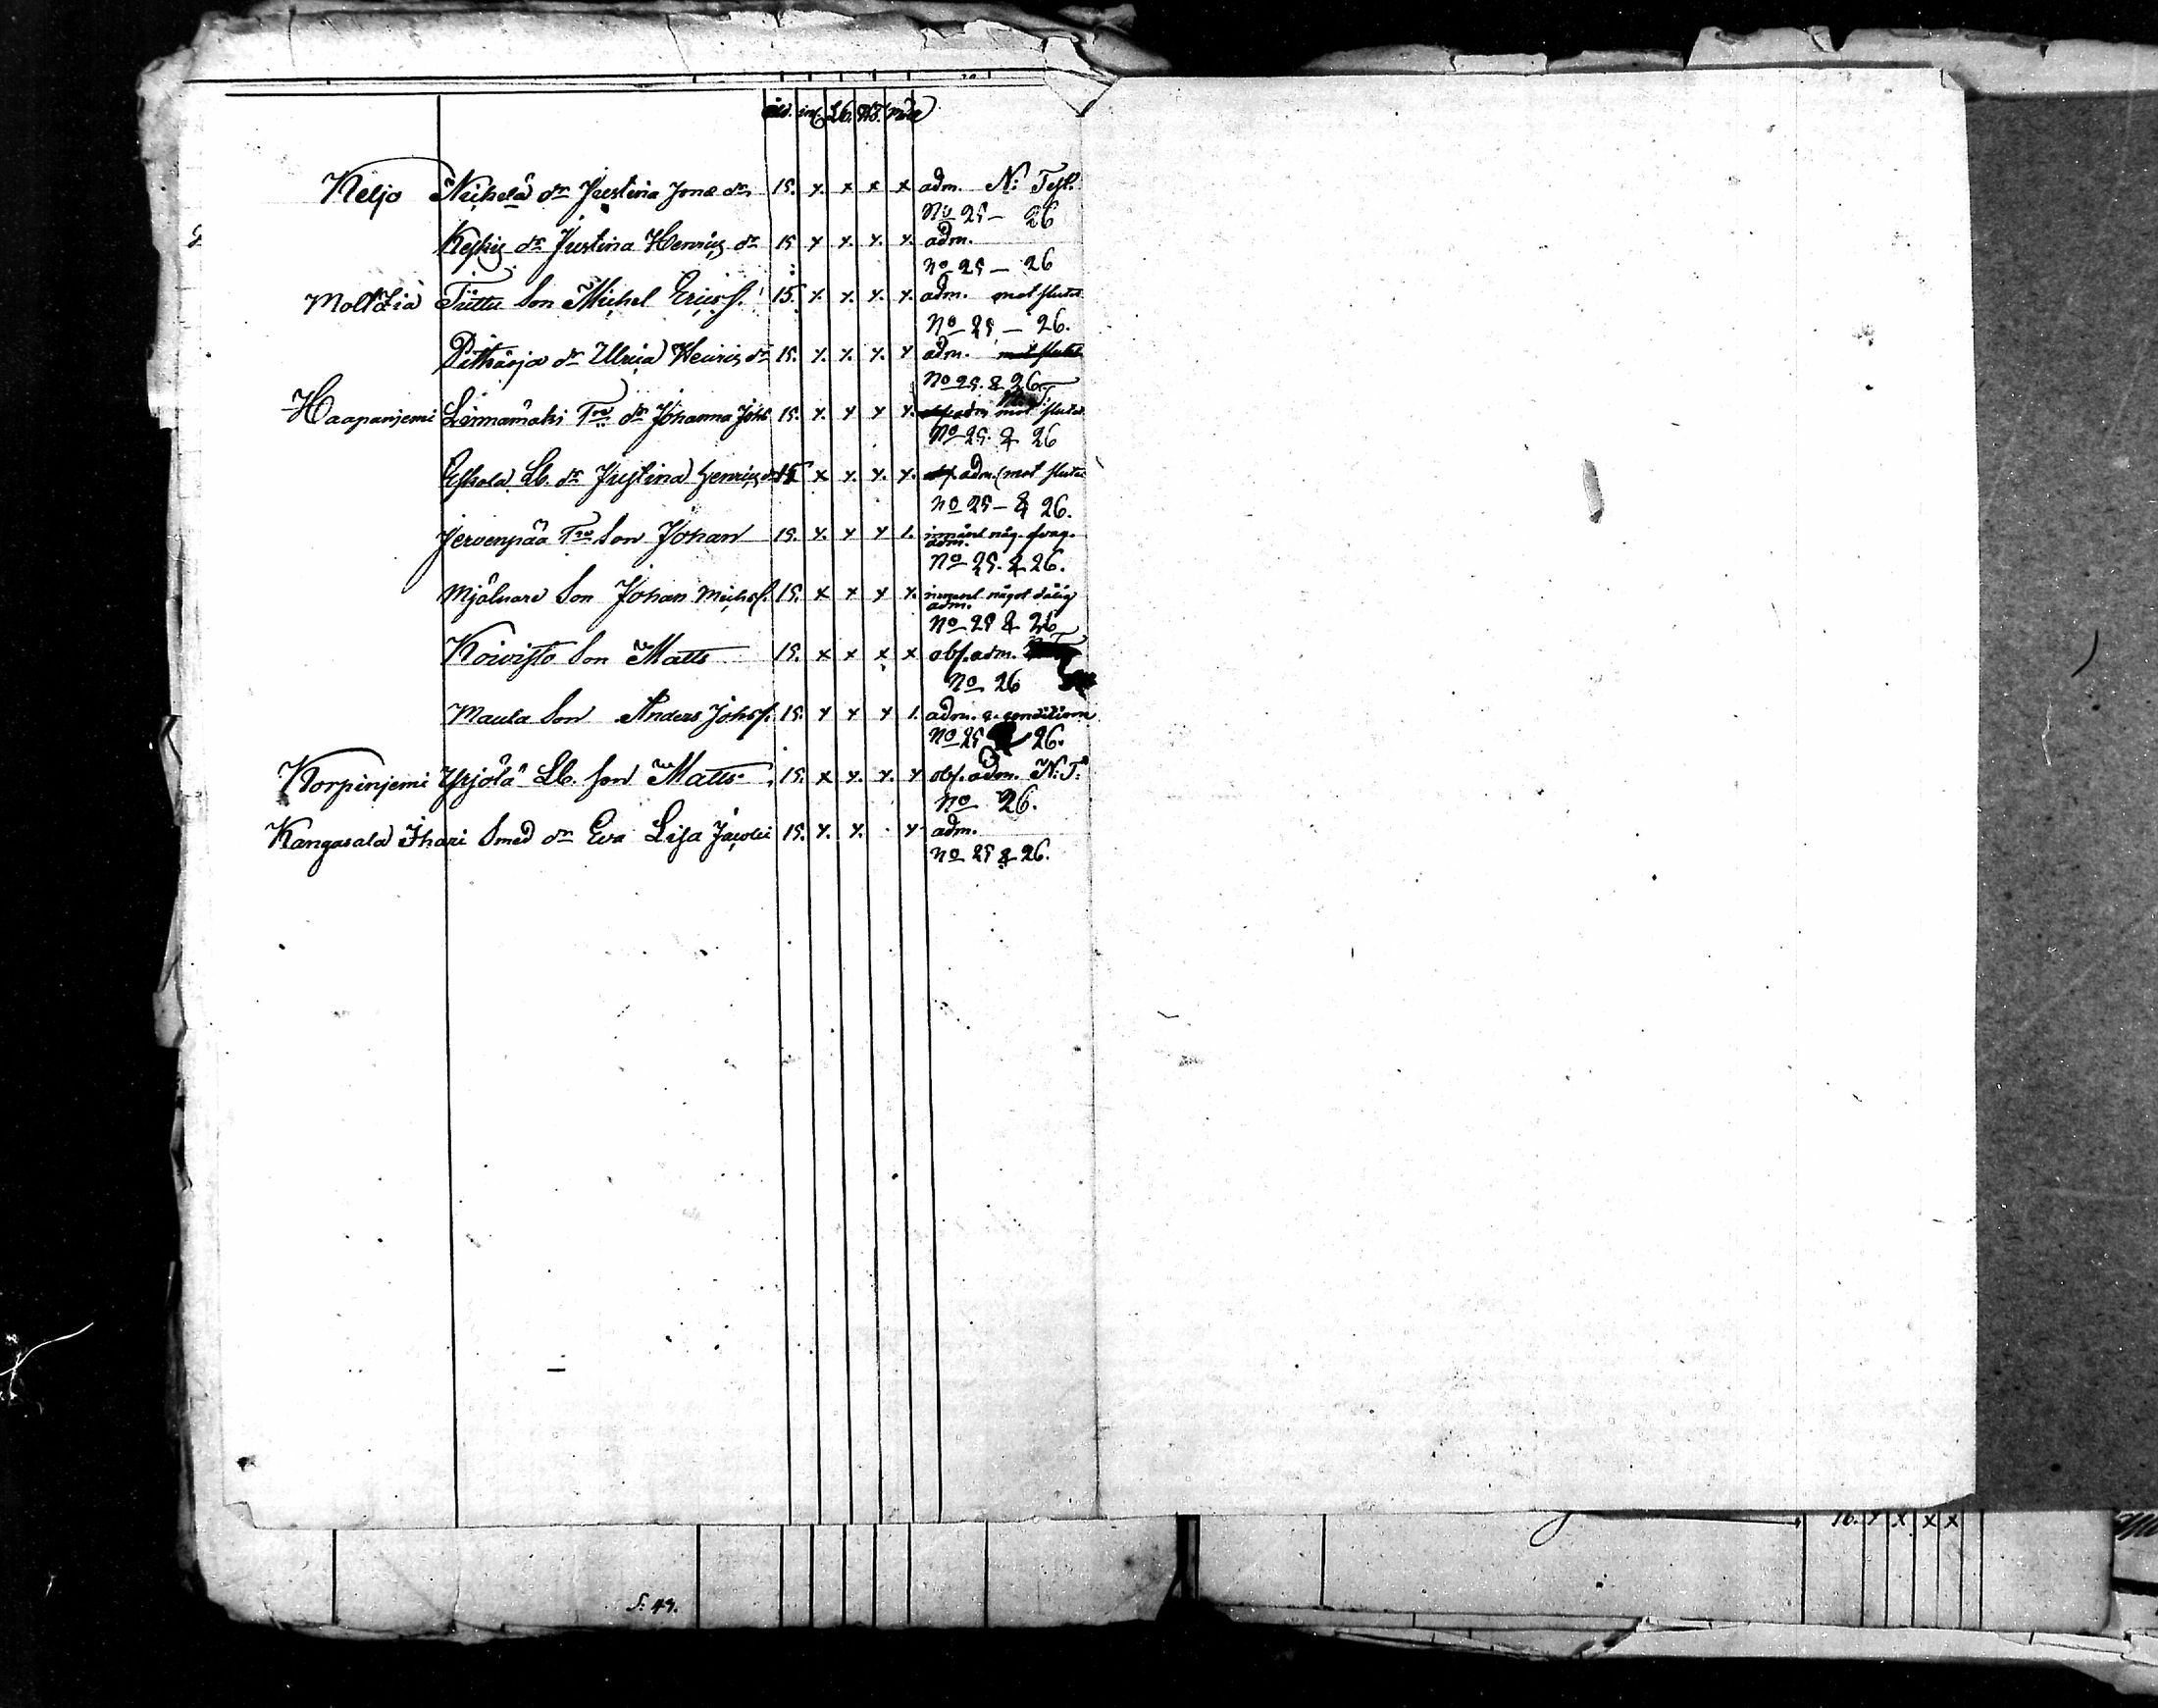 inl. Lb.
Keljo Neihelä dr Justina Jonæ dr 15. x. x x x adm. N: Test.
No 25 – 26
dr Justina Henrics dr 15 x x. x. x. adm.
No 25 – 26
Son Michel Erics s. 15. x. x. x. x. adm. mot slutet
No 25 – 26.
dr Ulrica Henrics dr 15. x. x. x. x adm. mot slutet
No 25. & 26.
Haapaniemi Linnamäki Trp dr Johanna Johs 15. x. x x x. adm mot slutet
No 25. & 26
Eskola Lb. dr Justina Henrics dr 15 x x. x. x. adm. mot slutet
No 25 – & 26.
Jervenpää Trp Son Johan 15. x. x x 1. innant någ. svag.
adm.
No 25. & 26.
Mjölnare Son Johan Michs s. 15. x x x x. innant något dålig
adm.
No 25 & 26
Koivisto Son Matts 15. x x x x obs. adm.
No 26
Maula Son Anders Johs s. 15. x x x 1. adm. c. conditione
No 25 & 26.
Korpiniemi Yrjölä Lb. son Matts 15. x x. x. x obs. adm. N: T:
No 26.
Kangasala Ihari Smed dr Eva Lisa Jacobi 15. x. x. . x adm.
No 25 & 26.
16. x x x x
S. 49.